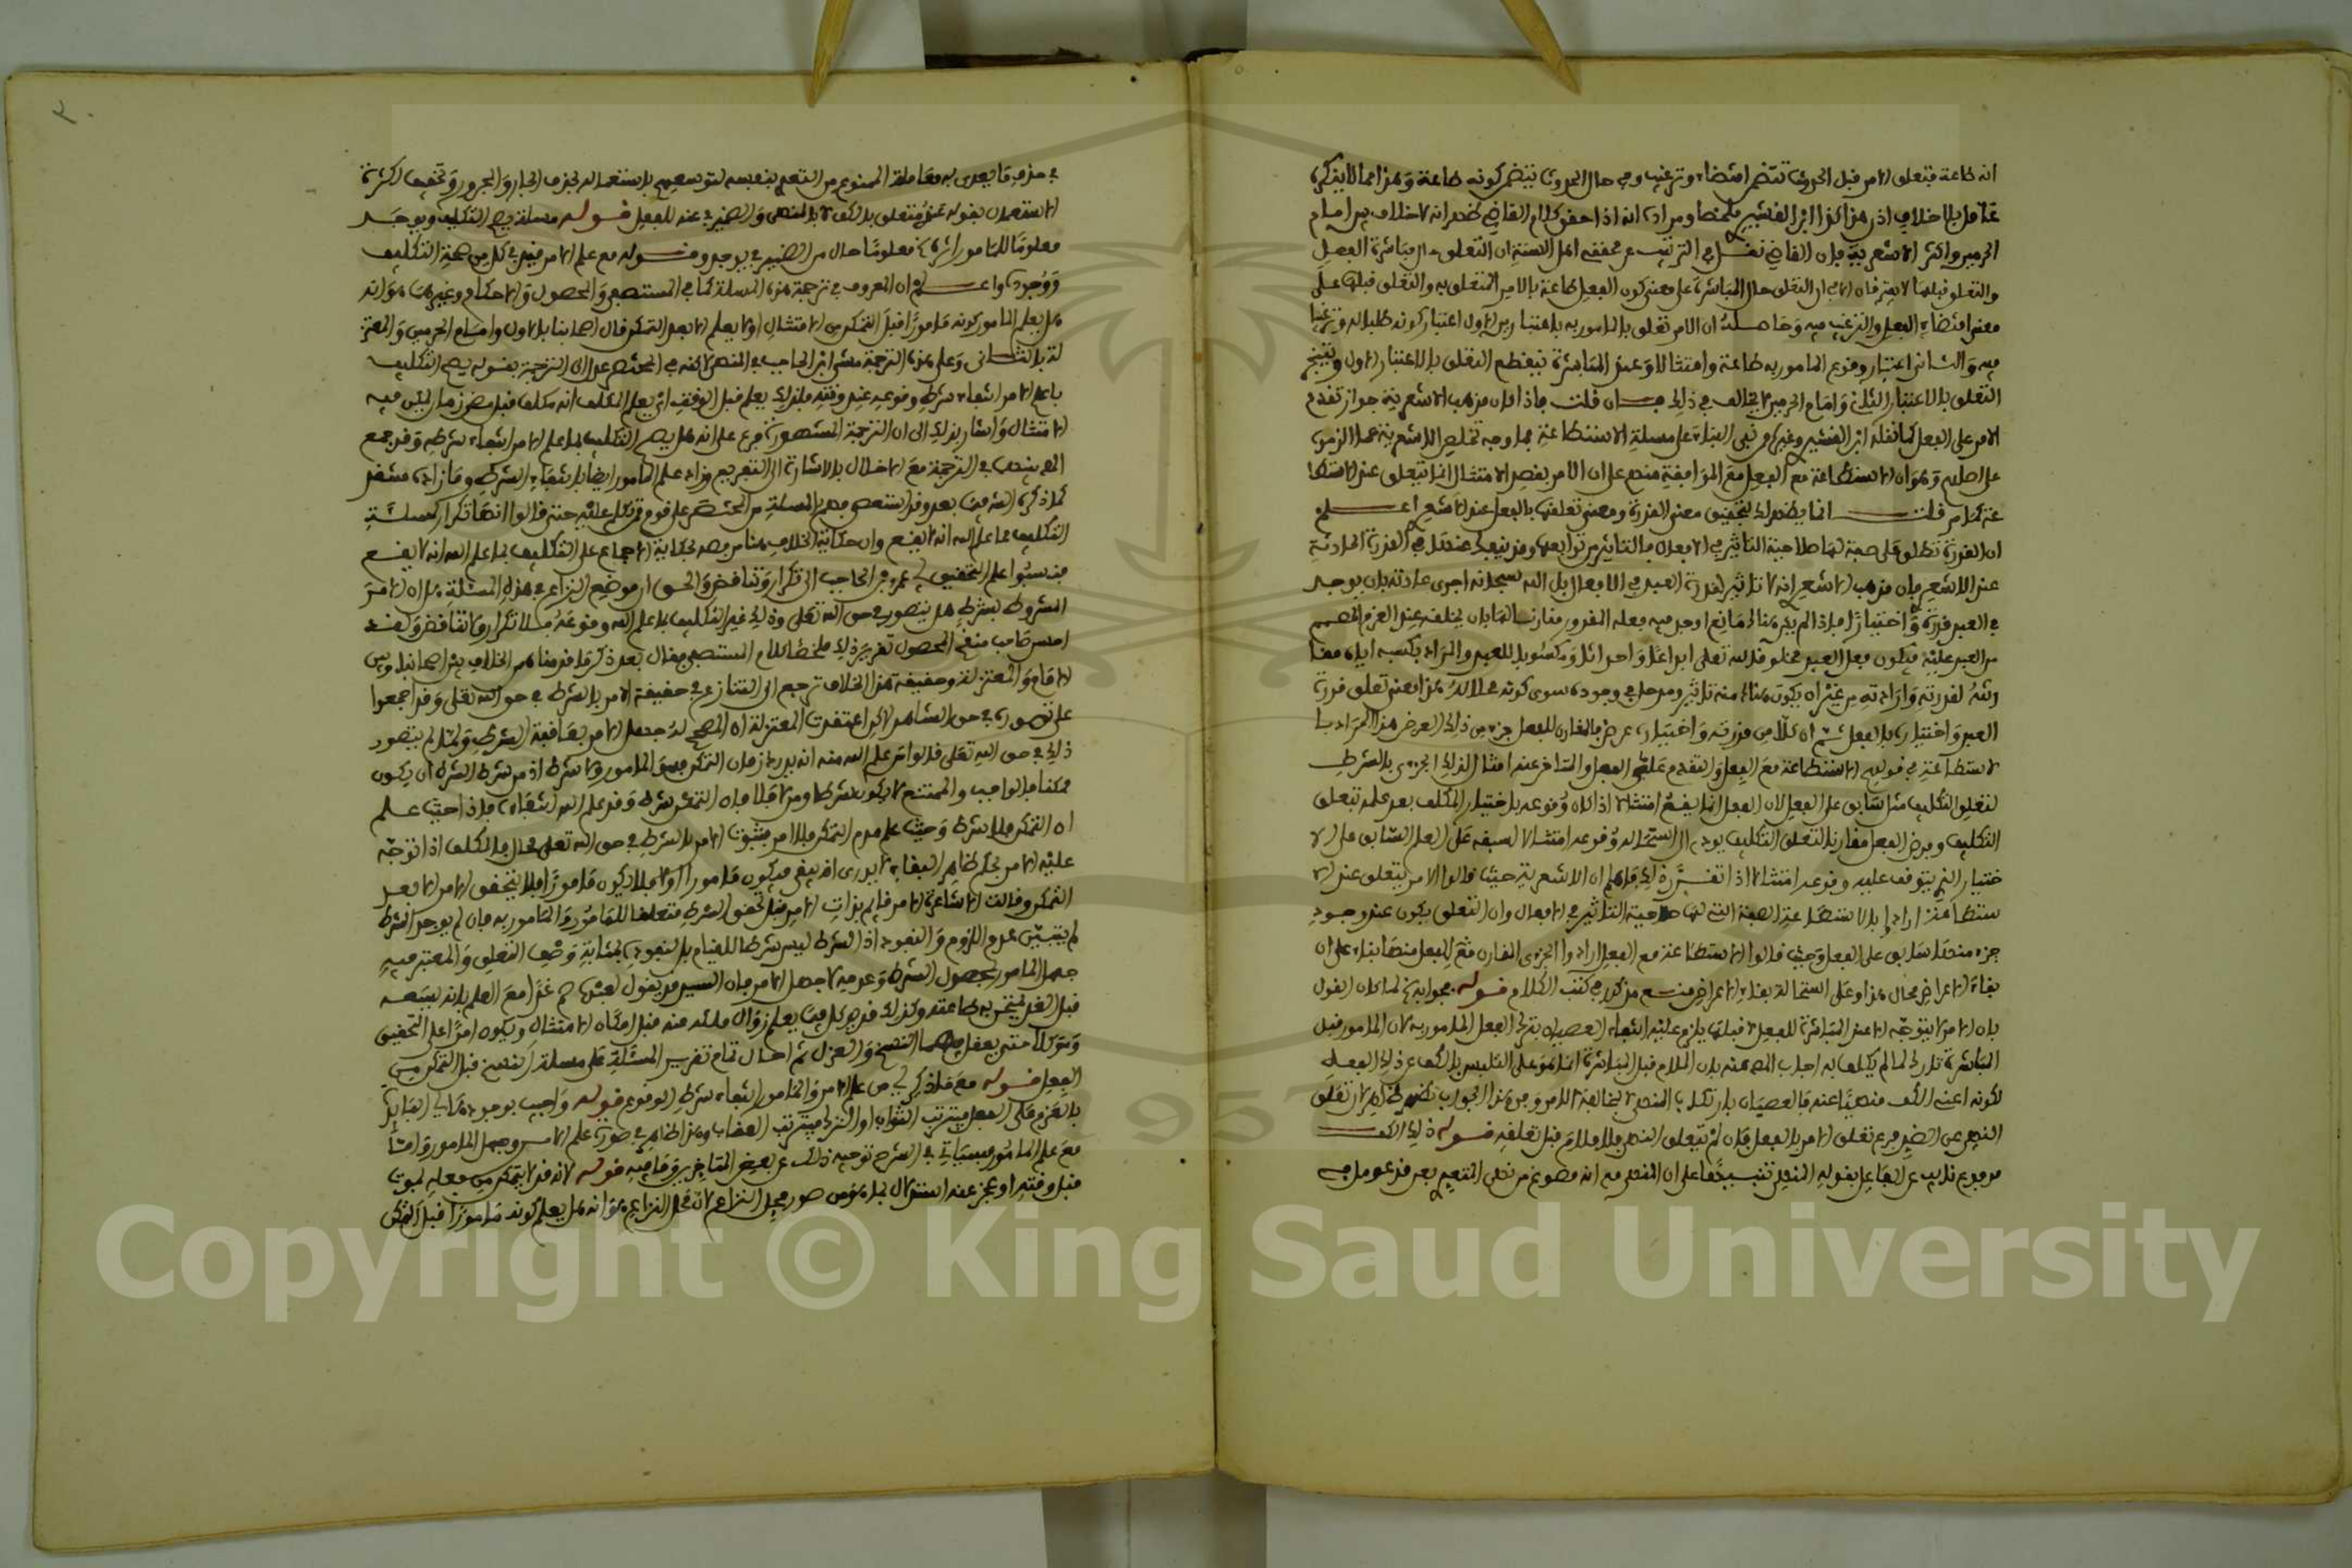 انه طاعة فتعلق الامر قبل الحدوث تتضمن اقتضاء وترغيب وفي حال الحدوث يتضمن كونه طاعة وهذا مما لا ينكره
عاقل بلا خلاف اذن هذا كلام ابن القشيري ملخصا ومراده انه اذا حقق كلام القاضي ظهر انه لا خلاف بين امام
الحرمين واكثر الاشعرية فان القاضي نقل في التقريب عن محققي اهل السنة ان التعلق حال مباشرة الفعل
والتعلق قبلها لا يفترقان الا في ان التعلق حال المباشرة على معنى كون الفعل طاعة بالامر المتعلق به والتعلق قبلها على
معنى اقتضاء الفعل والترغيب فيه وحاصله ان الامر تعلق بالمامور به باعتبارين الاول اعتبار كونه طلبا له وترغيبا
فيه والثاني اعتبار وقوع المامور به طاعة وامتثالا وعند المباشرة ينقطع التعلق بالاعتبار الاول ويتنجز
التعلق بالاعتبار الثاني وامام الحرمين لا يخالف في ذلك فان قلت فاذا كان مذهب الاشعرية جواز تقدم
الامر على الفعل كما نقله ابن القشيري وغيره ونفى البناء على مسلة الاستطاعة فما وجه تخلص الاشعرية عما الزموه
على اصلهم وهو ان الاستطاعة مع الفعل مع الموافقة منهم على ان الامر بقصد الامتثال انما يتعلق عند الاستطا
عة كما مر قلت انما يظهر لك بتحقيق معنى القدرة ومعنى تعلقها بالفعل عند الاشعري اعلم
ان القدرة تطلق على صفة لها صلاحية التاثير في الافعال فالتاثير من توابعها وقد يفعل عندها في القدرة الحادثة
عند الاشعري فان مذهب الاشعري انه لا تاثير لقدرة العبد في الافعال بل الله سبحانه اجرى عادته بان يوجد
في العبد قدرة واختيارا فاذا لم يكن هنالك مانع اوجد فيه فعله المقدور مقارنا لهما بان يخلقه عند العزم المصمم
من العبد عليه فيكون فعل العبد مخلوقا لله تعالى ابداعا واحداثا ومكسوبا للعبد والمراد بكسبه اياه مقا
رنته لقدرته وارادته من غير ان يكون هناك منه تاثير ومدخل في وجوده سوى كونه محلا له هذا معنى تعلق قدرة
العبد واختياره بالفعل ثم ان كلا من قدرته واختياره عرض فالمقارن للفعل جزء من ذلك العرض هذا المراد با
لاستطاعة في قولهم الاستطاعة مع الفعل والتقدم على الفعل والمتاخر عنه امثال لذلك الجزء بالشرط
لتعلق التكليف مثل سابق على الفعل لان الفعل انما يقع امتثالا اذا كان وقوعه باختيار المكلف بعد علمه بتعلق
التكليف وفرض الفعل مقارنا لتعلق التكليف يودي الى استحالة وقوعه امتثالا لسبقه على العلم السابق على الا
ختيار الذي يتوقف عليه وقوعه امتثالا اذا تقرر ذلك فاعلم ان الاشعرية حيث قالوا الامر يتعلق عند الا
ستطاعة ارادوا بالاستطاعة الصفة التي لها صلاحية التاثير في الافعال وان التعلق يكون عند وجود
جزء منها سابق على الفعل وحيث قالوا الاستطاعة مع الفعل ارادوا الجزء المقارن مع الفعل منها بناء على ان
بقاء الاعراض محال هذا وعلى استحالة بقاء الاعراض منع مذكور في كتب الكلام قوله وجوابه لما كان القول
بان الامر لا يتوجه الا عند المباشرة للفعل لا قبلها يلزم عليه انتفاء العصيان بترك الفعل المامور به لان المامور قبل
المباشرة تارك لما لم يكلف به اجاب المص عنه بان الملام قبل المباشرة انما هو على التلبس بالكف عن ذلك الفعل
لكونه اعني الكف منهيا عنه فالعصيان بارتكاب المنهي لا بمخالفة الامر وفي هذا الجواب نظر ظاهر لان تعلق
النهي عن الضد فرع تعلق الامر بالفعل فان لم يتعلق النهي فلا ملام قبل تعلقه قوله ذلك الكف
مرفوع نائب عن الفاعل بقوله المنهي تنبيها على ان المنهي فيه انه مصوغ من نهى المتعدي بعن فقد عومل فيه
في حذف ما يعدى به معاملة المصوغ من المتعدي بنفسه لتوسعهم باستعماله بحذف الجار والمجرور وتخفيفا لكثرة
الاستعمال بقوله عنه متعلق بالكف لا بالمنهي والضمير في عنه للفعل قوله مسلة يصح التكليف ويوجد
معلوما للمامور اثره معلوما حال من الضمير في يوجد وقوله مع علم الامر قيد في كل من صحة التكليف
ووجوده واعلم ان المعروف في ترجمة هذه المسلة كما في المستصفى والمحصول والاحكام وغيرها هو انه
هل يعلم المامور كونه مامورا قبل التمكن من الامتثال او لا يعلم الا بعد التمكن قال اصحابنا بالاول وامام الحرمين والمعتز
لة بالثاني وعلى هذه الترجمة مشى ابن الحاجب في المنتهى لكنه في المختصر عدل الى الترجمة بقوله يصح التكليف
بما علم الامر انتفاء شرط وقوعه عند وقته فلذلك يعلم قبل الوقت اي يعلم المكلف انه مكلف قبل مضي زمان يمكن فيه
الامتثال واشار بذلك الى ان الترجمة المشهورة فرع على انه هل يصح التكليف بما علم الامر انتفاء شرطه وقد جمع
المص بينهما في الترجمة مع الاخلال بالاشارة الى التفريع وزاد علم المامور ايضا بانتفاء الشرط وما زاده منتقد
كما ذكره الش فيما بعد وقد استصعب فهم المسلة من المختصر على قوم وتكلم عليه حتى قالوا انها تكرار لمسلة
التكليف بما علم الله انه لا يقع وان حكاية الخلاف هنا مناقض لحكاية الاجماع على التكليف بما علم الله انه لا يقع
فنسبوا علم التحقيق ابي عمرو بن الحاجب الى تكرار وتناقض والحق ان موضع النزاع في هذه المسئلة هل ان الامر
المشروط بشرط هل يتصور في حق الله تعالى وذلك غير التكليف بما علم الله وقوعه فلا تكرار ولا تناقض ولقد
احسن صاحب منتخب المحصول تقرير ذلك ملخصا كلام المستصفى فقال بعد ذكر ما قدمنا من الخلاف بين اصحابنا وبين
الامام والمعتزلة وحقيقة هذا الخلاف ترجع الى التنازع في حقيقة الامر بالشرط في حق الله تعالى وقد اجمعوا
على تصوره في حق الشاهد لكن اعتقدت المعتزلة ان المصحح له جهل الامر بعاقبة الشرط ولهذا لم يتصور
ذلك في حق الله تعالى قالوا من علم الله منه انه يدرك زمان التمكن فهو المامور ولا شرط اذ من شرط الشرط ان يكون
ممكنا فالواجب والممتنع لا يكون شرطا ومن لا فلا فان التمكن شرط وقد علم الله انتفاءه فاذا حيث علم
ان التمكن فلا شرط وحيث علم عدم التمكن فلا امر فثبوت الامر بالشرط في حق الله تعالى محال فالمكلف اذا توجه
عليه الامر بحكم ظاهر البقاء لا يدرى انه يبقى فيكون مامورا او لا فلا يكون مامورا فلا يتحقق الامر الا بعد
التمكن وقالت الاشاعرة الامر قائم بذات الامر قبل تحقق الشرط متعلقا للمامور والمامور به فان لم يوجد الشرط
لم يتبين عدم اللزوم والنفوذ اذ الشرط ليس شرطا للقيام بل لنفوذه بمثابة وصف التعلق والمعتبر فيه
جهل المامور بحصول الشرط وعدمه لا جهل الامر فان السيد قد يقول لعبده صم غدا مع العلم بانه يبيعه
قبل الغد ليختبر به طاعته وكذلك قد يوكل فيما يعلم زوال ملكه عنه قبل امكان الامتثال ويكون امرا على التحقيق
وتوكيلا حتى يعقل فيهما النسخ والعزل ثم احال تمام تقرير المسئلة على مسلة النسخ قبل التمكن من
الفعل قوله مع ما ذكر اي من علم الامر والمامور انتفاء شرط الوقوع قوله واجيب بوجودها اي الفائدة
بالعزم على الفعل فيترتب الثواب او الترك فيترتب العقاب وهذا ظاهر في صورة علم الامر وجهل المامور واما
مع علم المامور فسياتي في الشرح توجيه ذلك عن بعض المتاخرين وما فيه قوله لانه قد لا يتمكن من فعله لموت
قبل وقته او عجز عنه استدلال بما هو من صور محل النزاع لان محل النزاع هو انه هل يعلم كونه مامورا قبل التمكن
٢٠
Copyright © King Saud University
1957